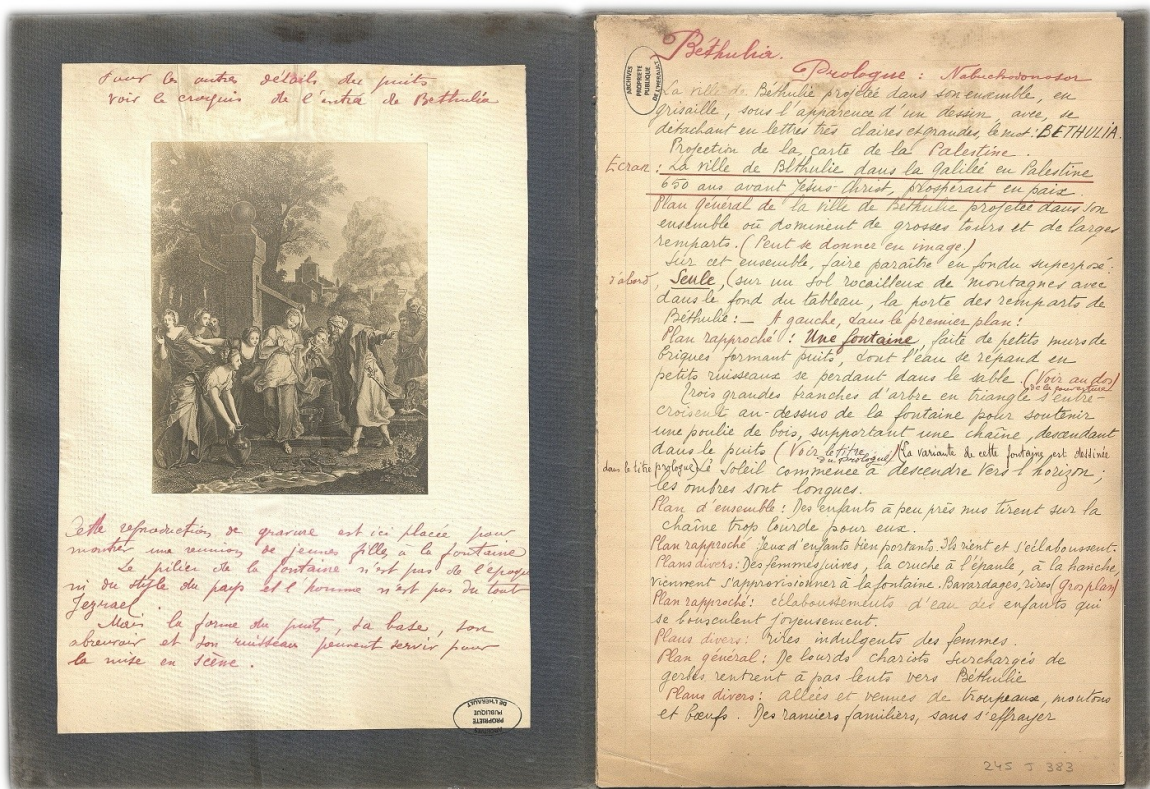 Pour les autres détails du puits
voir le croquis de l'entrée de Bethulia
Cette reproduction de gravure est ici placée pour
montrer une réunion de jeunes filles à la fontaine
Le pilier de la fontaine n'est pas de l'époque
ni du style du pays et l'homme n'est pas du tout
Jezrael.
Mais la forme du puits, sa base, son
abreuvoir et son ruisseau peuvent servir pour
la mise en scène.
ARCHIVES
PROPRIETE
PUBLIQUE
DE L'HERAULT
Béthulia.
Prologue : Nabuchodonosor
ARCHIVES
PROPRIETE
PUBLIQUE
DE L'HERAULT
La ville de Béthulie projetée dans son ensemble, en
grisaille, sous l'apparence d'un dessin avec, se
détachant en lettres très claires et grandes, le mot : BETHULIA.
Projection de la carte de la Palestine.
Ecran : La ville de Béthulie dans la Galilée en Palestine
650 ans avant Jésus-Christ, prospérait en paix.
Plan général de la ville de Béthulie projetée dans son
ensemble où dominent de grosses tours et de larges
remparts. (Peut se donner en image)
Sur cet ensemble, faire paraître en fondu superposé :
d'abord, Seule, (sur un sol rocailleux de montagnes avec
dans le fond du tableau, la porte des remparts de
Béthulie : — A gauche, dans le premier plan :
Plan rapproché : Une fontaine, faite de petits murs de
briques formant puits, dont l'eau se répand en
petits ruisseaux se perdant dans le sable. (Voir au dos)
de la couverture
Trois grandes branches d'arbre en triangle s'entre-
croisent au-dessus de la fontaine pour soutenir
une poulie de bois, supportant une chaîne, descendant
dans le puits (Voir le titre du prologue) (la variante de cette fontaine est dessinée
dans le titre prologue) Le Soleil commence à descendre vers l'horizon ;
les ombres sont longues.
Plan d'ensemble : Des enfants à peu près nus tirent sur la
chaîne trop lourde pour eux.
Plan rapproché Jeux d'enfants bien portants. Ils rient et s'éclaboussent.
Plans divers : Des femmes juives, la cruche à l'épaule, à la hanche,
viennent s'approvisionner à la fontaine. Bavardages, rires (Gros plan)
Plan rapproché : éclaboussements d'eau des enfants qui
se bousculent joyeusement.
Plans divers : Rires indulgents des femmes.
Plan général : De lourds chariots surchargés de
gerbes rentrent à pas lents vers Béthulie
Plans divers : allées et venues de troupeaux, moutons
et bœufs. Des ramiers familiers, sans s'effrayer
245 J 383